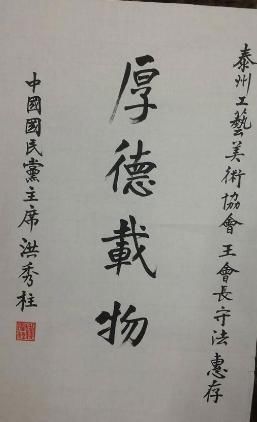 泰州工藝美術協會王會長守法惠存
厚德載物
中國國民黨主席洪秀柱